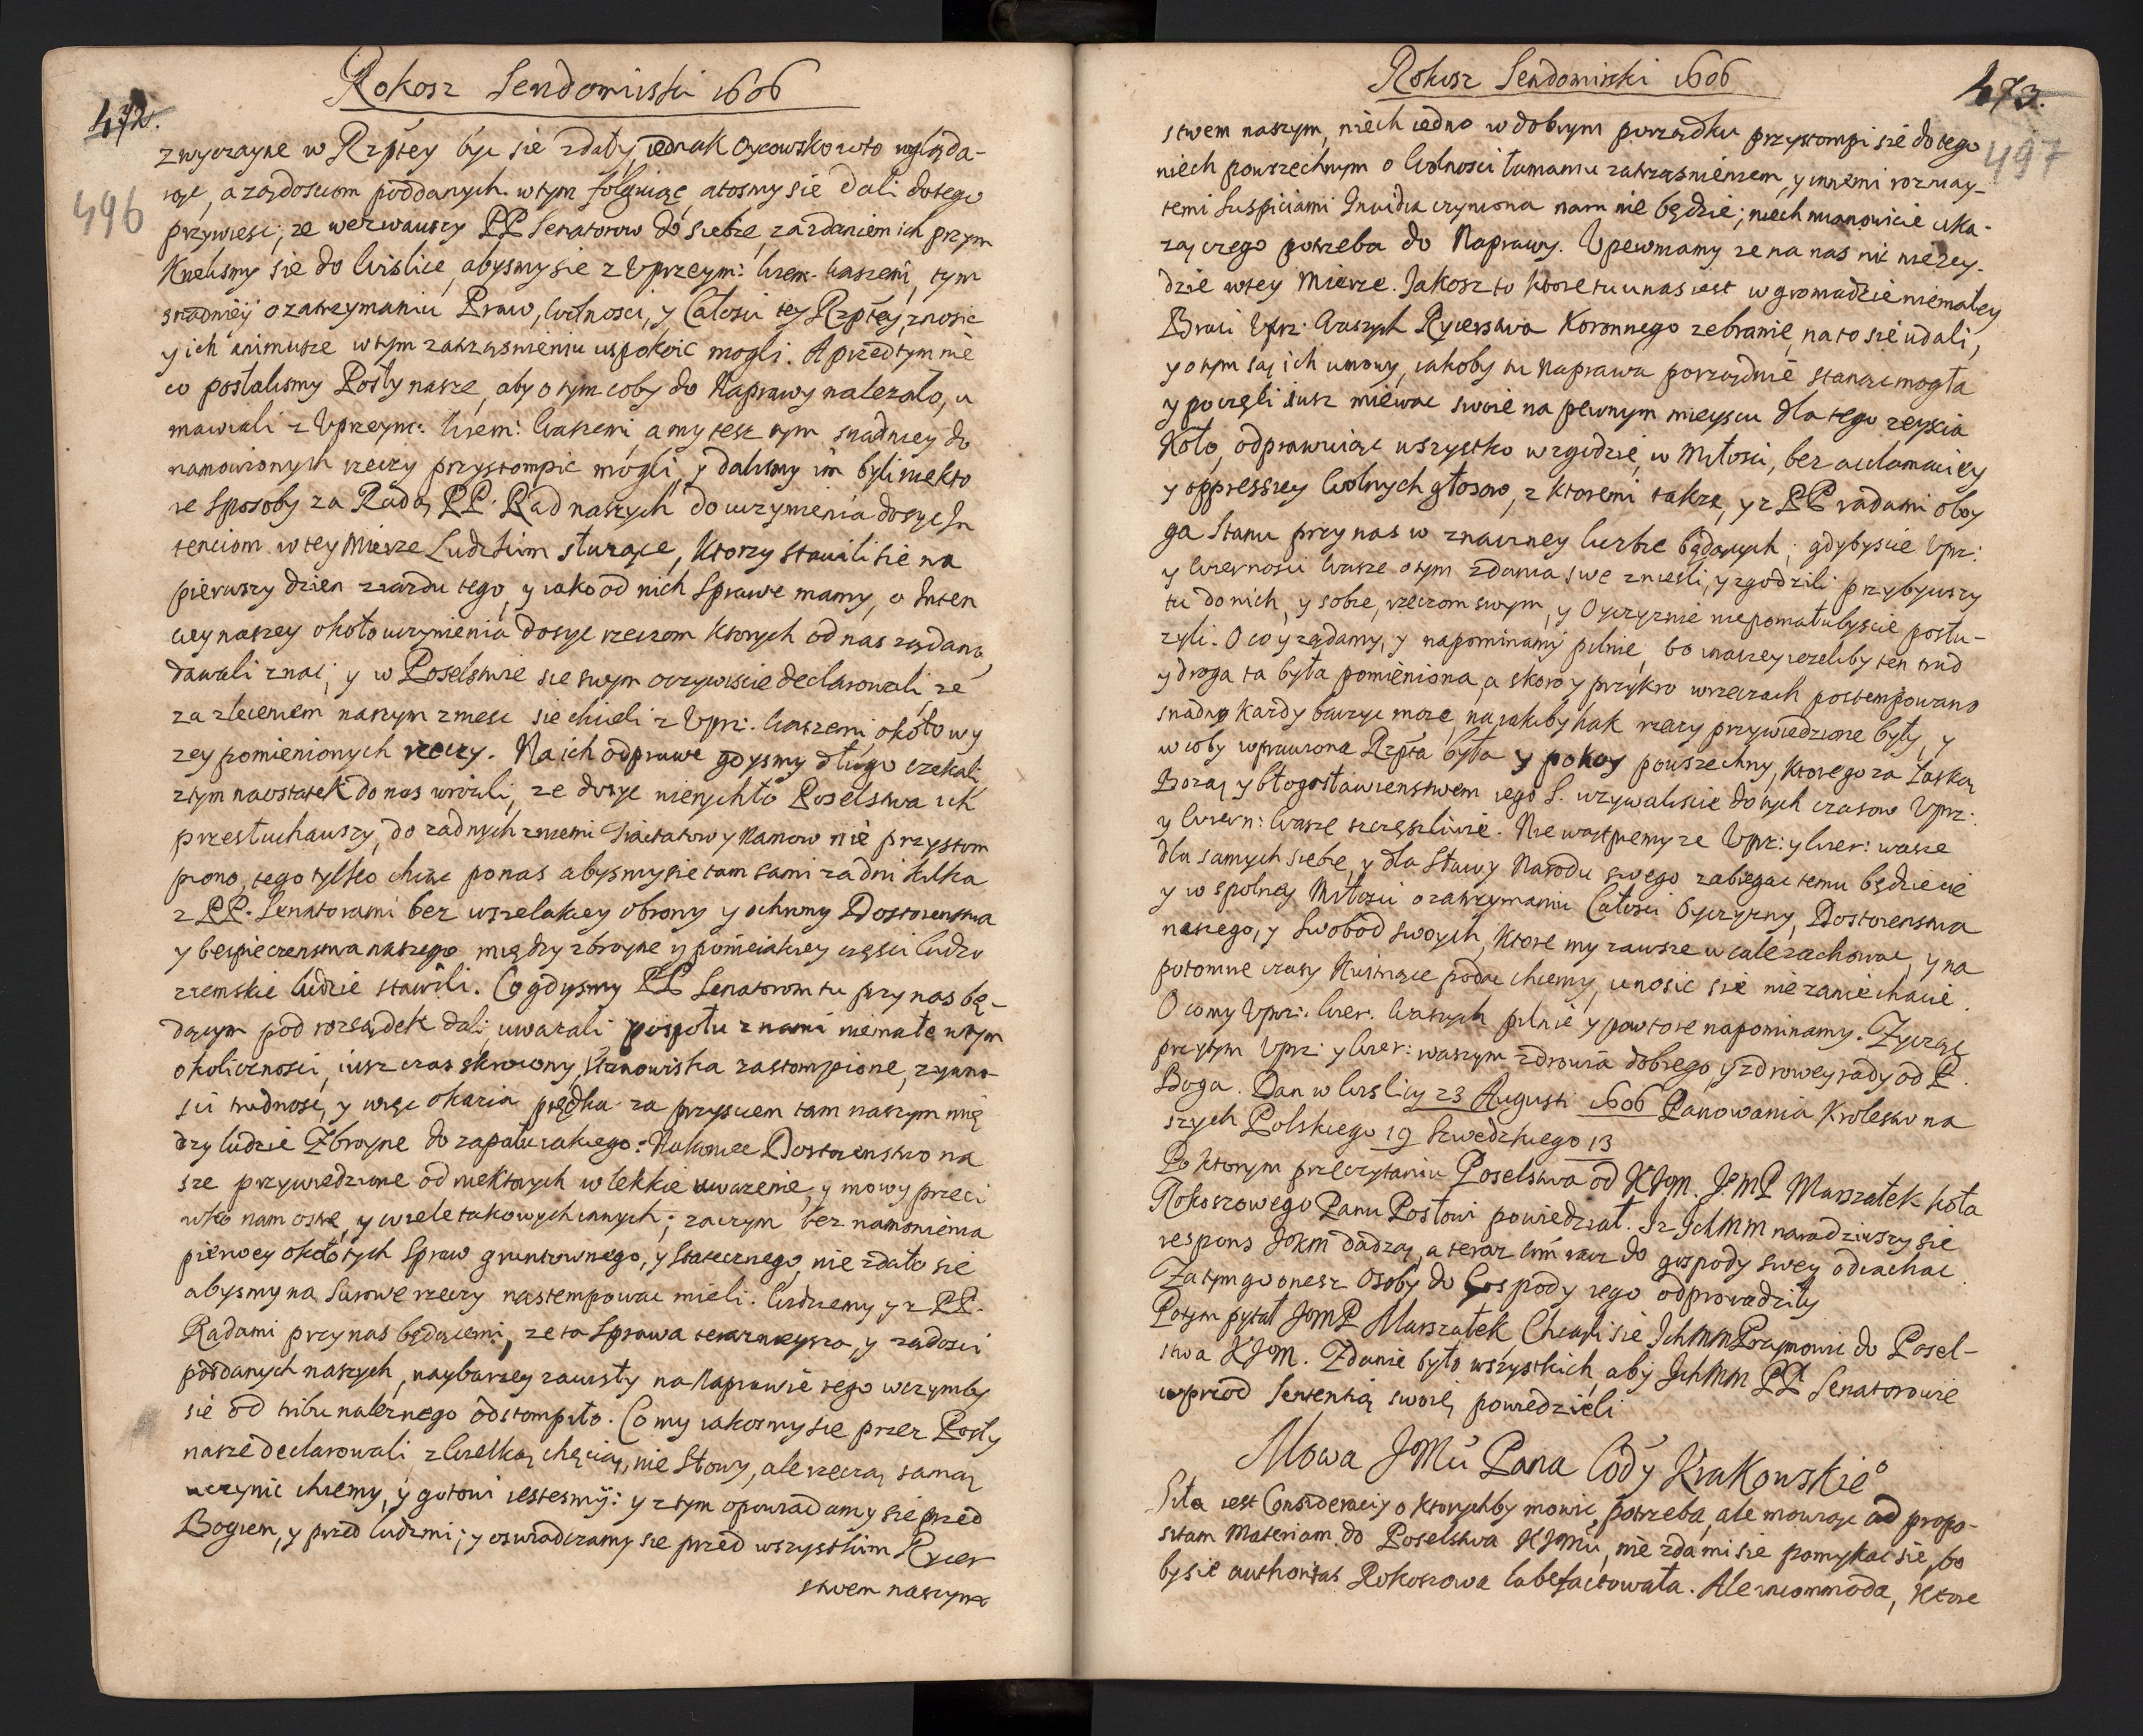 Rokosz Sendomirski 1606
472.
496
zwyczayne w Rzptey być sie zdały, iednak Oycowsko w to wgląda-
iąc, a ządosciom poddanych w tym folguiąc, atosmy sie dali do tego
przywiesc, ze wezwawszy PP Senatorow do siebie, za zdaniem ich przym
Knelismy sie do Wislice, abysmy sie z Uprzeym: Wiern: Waszemi, tym
snadniey o zatrzymaniu Praw, Wolnosci, y Całosci tey Rzptey, znosic
y ich animusze w tym zatrząsnieniu uspokoic mogli. A przed tym nie
co posłalismy Posły nasze, aby o tym coby do Naprawy nalezało, u
mawiali z Uprzeym: Wiern: Waszemi, a my tesz tym snadniey do
namowionych rzeczy przystompic mogli, y dalismy im byli niekto
re Sposoby za Radą PP. Rad naszych do uczynienia dosyc In
tenciom w tey Mierze Ludzkim słuzące, Ktorzy stawili sie na
pierwszy dzien ziazdu tego, y iako od nich Sprawe mamy, o Inten
ciey naszey około uczynienia dosyc rzeczom Ktorych od nas ządano,
dawali znac, y w Poselstwie sie swym oczywiscie declarowali, ze
za zleceniem naszym zniesc sie chcieli z Uprz: Waszemi, około wy
zey pomienionych rzeczy. Na ich odprawe gdysmy długo czekali,
z tym naostatek do nas wrocili, ze dosyc nierychło Poselstwa ich
przesłuchawszy, do zadnych z niemi Tractatow y Namow nie przystom
piono, tego tylko chcąc po nas abysmy sie tam sami za dni kilka
z PP. Senatorami bez wszelakiey obrony y ochrony Dostoienstwa
y bespieczenstwa naszego między zbroyne y poniewiakiey częsci ludzo
ziemskie ludzie stawili. Co gdysmy PP Senatorom tu przy nas bę-
dącym pod rozsądek dali, uwazali pospołu z nami niemałe w tym
okolicznosci, iusz czas skrocony, Stanowiska zastompione, zywno-
sci trudnosc, y więc okazia prędka za przysciem tam naszym mię
dzy ludzie Zbroyne do zapału iakiego: Nakoniec Dostoienstwo na
sze przywiedzione od niektorych w lekkie uwazenie, y mowy przeci
wko nam ostre, y wiele takowych innych; zaczym bez namowienia
pierwey około tych Spraw gruntownego, y Statecznego, nie zdało sie
abysmy na Surowe rzeczy nastempowac mieli. Widziemy y z PP.
Radami przy nas będącemi, ze ta Sprawa teraznieysza, y ządosci
poddanych naszych, naybarziey zawisły na Naprawie tego w czymby
sie od tribu naleznego odstompiło. Co my iakosmy sie przez Posły
nasze declarowali z Wielką chęcią, nie Słowy, ale rzeczą samą
uczynic chcemy, y gotowi iestesmy: y z tym opowiadamy sie przed
Bogiem, y przed ludzmi; y oswiadczamy sie przed wszystkim Rycer
stwem naszym
Rokosz Sendomirski 1606
473.
497
stwem naszym, niech iedno w dobrym porządku przystompi sie do tego
niech powszechnym o Wolnosci łamaniu zatrząsnieniem, y innemi rozmay-
temi Suspiciami Invidia czyniona nam nie będzie; niech mianowicie uka-
zą czego potrzeba do Naprawy. Upewniamy ze na nas nic nie zey-
dzie w tey Mierze. Jakosz to Ktore tu u nas iest w gromadzie niemałey
Braci Uprz: Waszych Rycerstwa Koronnego zebranie, na to sie udali,
y o tym są ich umowy, iakoby tu Naprawa porządnie stanąc mogła
y poczęli iusz miewac swoie na pewnym mieyscu dla tego zeyscia
Koło, odprawuiąc wszystko w zgodzie, w Miłosci, bez acclamaciey
y oppressiey Wolnych głosow, z ktoremi takze, y z PP radami oboy
ga Stanu przy nas w znaczney liczbie będących, gdybyscie Uprz:
y Wiernosci Wasze o tym zdania swe zniesli, y zgodzili przybywszy
tu do nich, y sobie, rzeczom swym, y Oyczyznie niepomałubyscie posłu-
zyli. O co y ządamy, y napominamy pilnie, bo inaszey iezeliby ten trud
y droga ta była pomieniona, a skoro y przykro w rzeczach postempowano
snadno Kazdy baczyc moze, na iakiby hak rzeczy przywiedzione były, y
w coby wprawiona Rzpta była y pokoy powszechny, Ktorego za Łaską
Bozą y błogosławienstwem iego S. uzywaliscie do tych czasow Uprz:
y Wiern: Wasze szczęsliwie. Nie wątpiemy ze Uprz: y Wier: wasze
dla samych siebie, y dla Sławy Narodu swego zabiegac temu będziecie
y w spolney Miłosci o zatrzymaniu Całosci Oyczyzny, Dostoienstwa
naszego, y Swobod swoych, Ktore my zawsze w cale zachowac, y na
potomne czasy Kwitnące podac chcemy, znosic sie nie zaniechacie.
O co my Uprz: Wier. Waszych pilnie y powtore napominamy. Zycząc
przytym Uprz: y Wier: waszym zdrowia dobrego, y zdrowey rady od P.
Boga. Dan w Wislicy 23 Augusti 1606 Panowania Krolestw na
szych Polskiego 19 Szwedzkiego 13
Po ktorym przeczytaniu Poselstwa od KJM. JMP Marszałek koła
Rokoszowego Panu Posłowi powiedział. Iz IchMM naradziwszy sie
respons JoKM dadzą, a teraz cum racz do gospody swey odiachac.
Zatym go onesz Osoby do Gospody iego odprowadziły
Potym pytał JMP Marszałek Chcąli sie IchMM Przymowic do Posel-
stwa KJM. Zdanie było wszystkich, aby IchMM PP Senatorowie
wprzod Sententią swoię powiedzieli
Mowa JMci Pana Cody Krakowskieo
Siła iest Consideraciy o ktorychby mowic potrzeba, ale mowiąc ad propo-
sitam Materiam do Poselstwa KJMci, nie zda mi sie pomykac sie, bo
by sie authoritas Rokoszowa labefactowała. Ale incommoda, Ktore